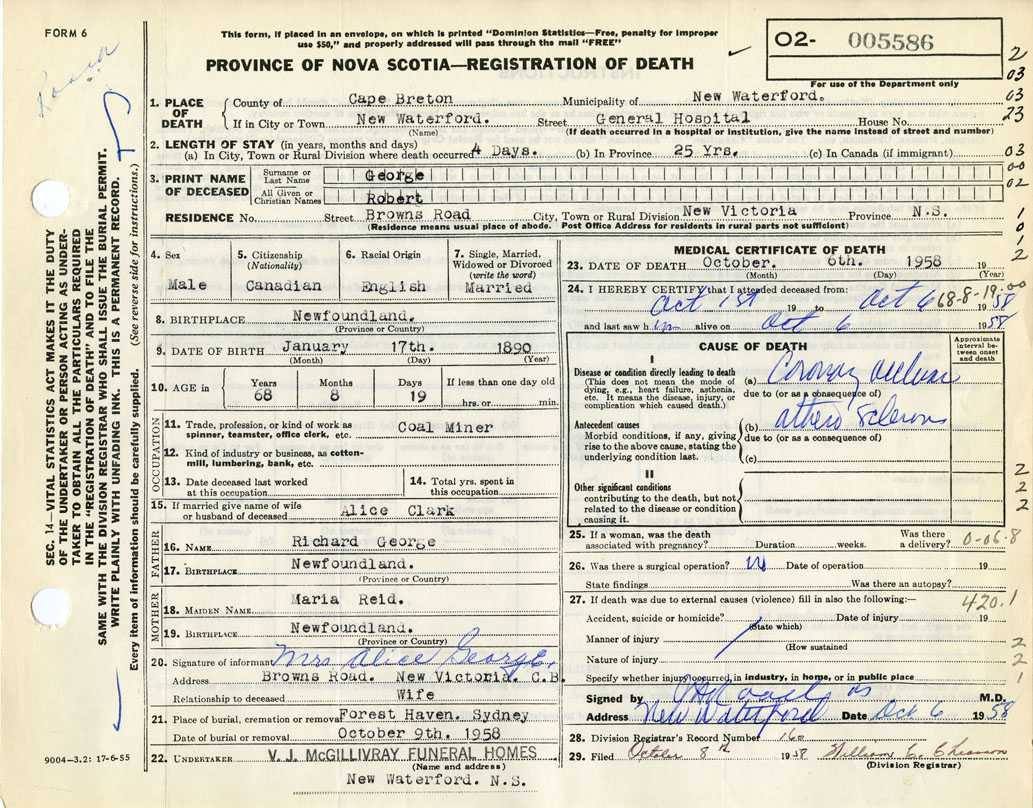 FORM 6
This form, if placed in an envelope, on which is printed "Dominion Statistics—Free, penalty for improper
use $50," and properly addressed will pass through the mail "FREE"
PROVINCE OF NOVA SCOTIA—REGISTRATION OF DEATH
O2- 005586
For use of the Department only
2
03
03
23
03
00
02
1
0
1
2
SEC. 14—VITAL STATISTICS ACT MAKES IT THE DUTY
OF THE UNDERTAKER OR PERSON ACTING AS UNDER-
TAKER TO OBTAIN ALL THE PARTICULARS REQUIRED
IN THE "REGISTRATION OF DEATH" AND TO FILE THE
SAME WITH THE DIVISION REGISTRAR WHO SHALL ISSUE THE BURIAL PERMIT.
WRITE PLAINLY WITH UNFADING INK. THIS IS A PERMANENT RECORD.
Every item of information should be carefully supplied. (See reverse side for instructions.)
1. PLACE OF DEATH
County of Cape Breton Municipality of New Waterford.
If in City or Town New Waterford. Street General Hospital House No.
(Name) (If death occurred in a hospital or institution, give the name instead of street and number)
2. LENGTH OF STAY (in years, months and days)
(a) In City, Town or Rural Division where death occurred 4 Days. (b) In Province 25 Yrs. (c) In Canada (if immigrant)
3. PRINT NAME OF DECEASED
Surname or Last Name George
All Given or Christian Names Robert
RESIDENCE No. Street Browns Road City, Town or Rural Division New Victoria Province N.S.
(Residence means usual place of abode. Post Office Address for residents in rural parts not sufficient)
4. Sex 5. Citizenship (Nationality) 6. Racial Origin 7. Single, Married, Widowed or Divorced (write the word)
Male Canadian English Married
8. BIRTHPLACE Newfoundland.
(Province or Country)
9. DATE OF BIRTH January 17th. 1890
(Month) (Day) (Year)
10. AGE in Years Months Days If less than one day old
68 8 19 hrs. or min.
OCCUPATION
11. Trade, profession, or kind of work as spinner, teamster, office clerk, etc. Coal Miner
12. Kind of industry or business, as cotton-mill, lumbering, bank, etc.
13. Date deceased last worked at this occupation
14. Total yrs. spent in this occupation
15. If married give name of wife or husband of deceased Alice Clark
FATHER
16. NAME Richard George
17. BIRTHPLACE Newfoundland.
(Province or Country)
MOTHER
18. MAIDEN NAME Maria Reid.
19. BIRTHPLACE Newfoundland.
(Province or Country)
20. Signature of informant Mrs Alice George.
Address Browns Road. New Victoria. C.B.
Relationship to deceased Wife
21. Place of burial, cremation or removal Forest Haven. Sydney
Date of burial or removal October 9th. 1958
22. UNDERTAKER V. J. McGILLIVRAY FUNERAL HOMES
(Name and address)
New Waterford. N.S.
9004—3.2: 17-6-55
MEDICAL CERTIFICATE OF DEATH
23. DATE OF DEATH October. 6th. 1958 19
(Month) (Day) (Year)
24. I HEREBY CERTIFY that I attended deceased from: 68-8-19:00
Oct 1st 19 to Oct 6 1958
and last saw him alive on Oct 6 1958
CAUSE OF DEATH
Approximate interval between onset and death
I
Disease or condition directly leading to death
(This does not mean the mode of dying, e.g., heart failure, asthenia, etc. It means the disease, injury, or complication which caused death.)
(a) Coronary
due to (or as a consequence of)
Antecedent causes
Morbid conditions, if any, giving rise to the above cause, stating the underlying condition last.
(b)
due to (or as a consequence of)
(c)
II
Other significant conditions
contributing to the death, but not related to the disease or condition causing it.
2
2
2
25. If a woman, was the death associated with pregnancy? Duration weeks. Was there a delivery? 0-06.8
26. Was there a surgical operation? Date of operation 19
State findings Was there an autopsy?
27. If death was due to external causes (violence) fill in also the following:— 420.1
Accident, suicide or homicide? Date of injury 19
(State which)
Manner of injury
(How sustained
Nature of injury
Specify whether injury occurred in industry, in home, or in public place
2
2
1
Signed by M.D.
Address New Waterford Date Oct 6 1958
28. Division Registrar's Record Number 160
29. Filed October 8th 1958 William
(Division Registrar)